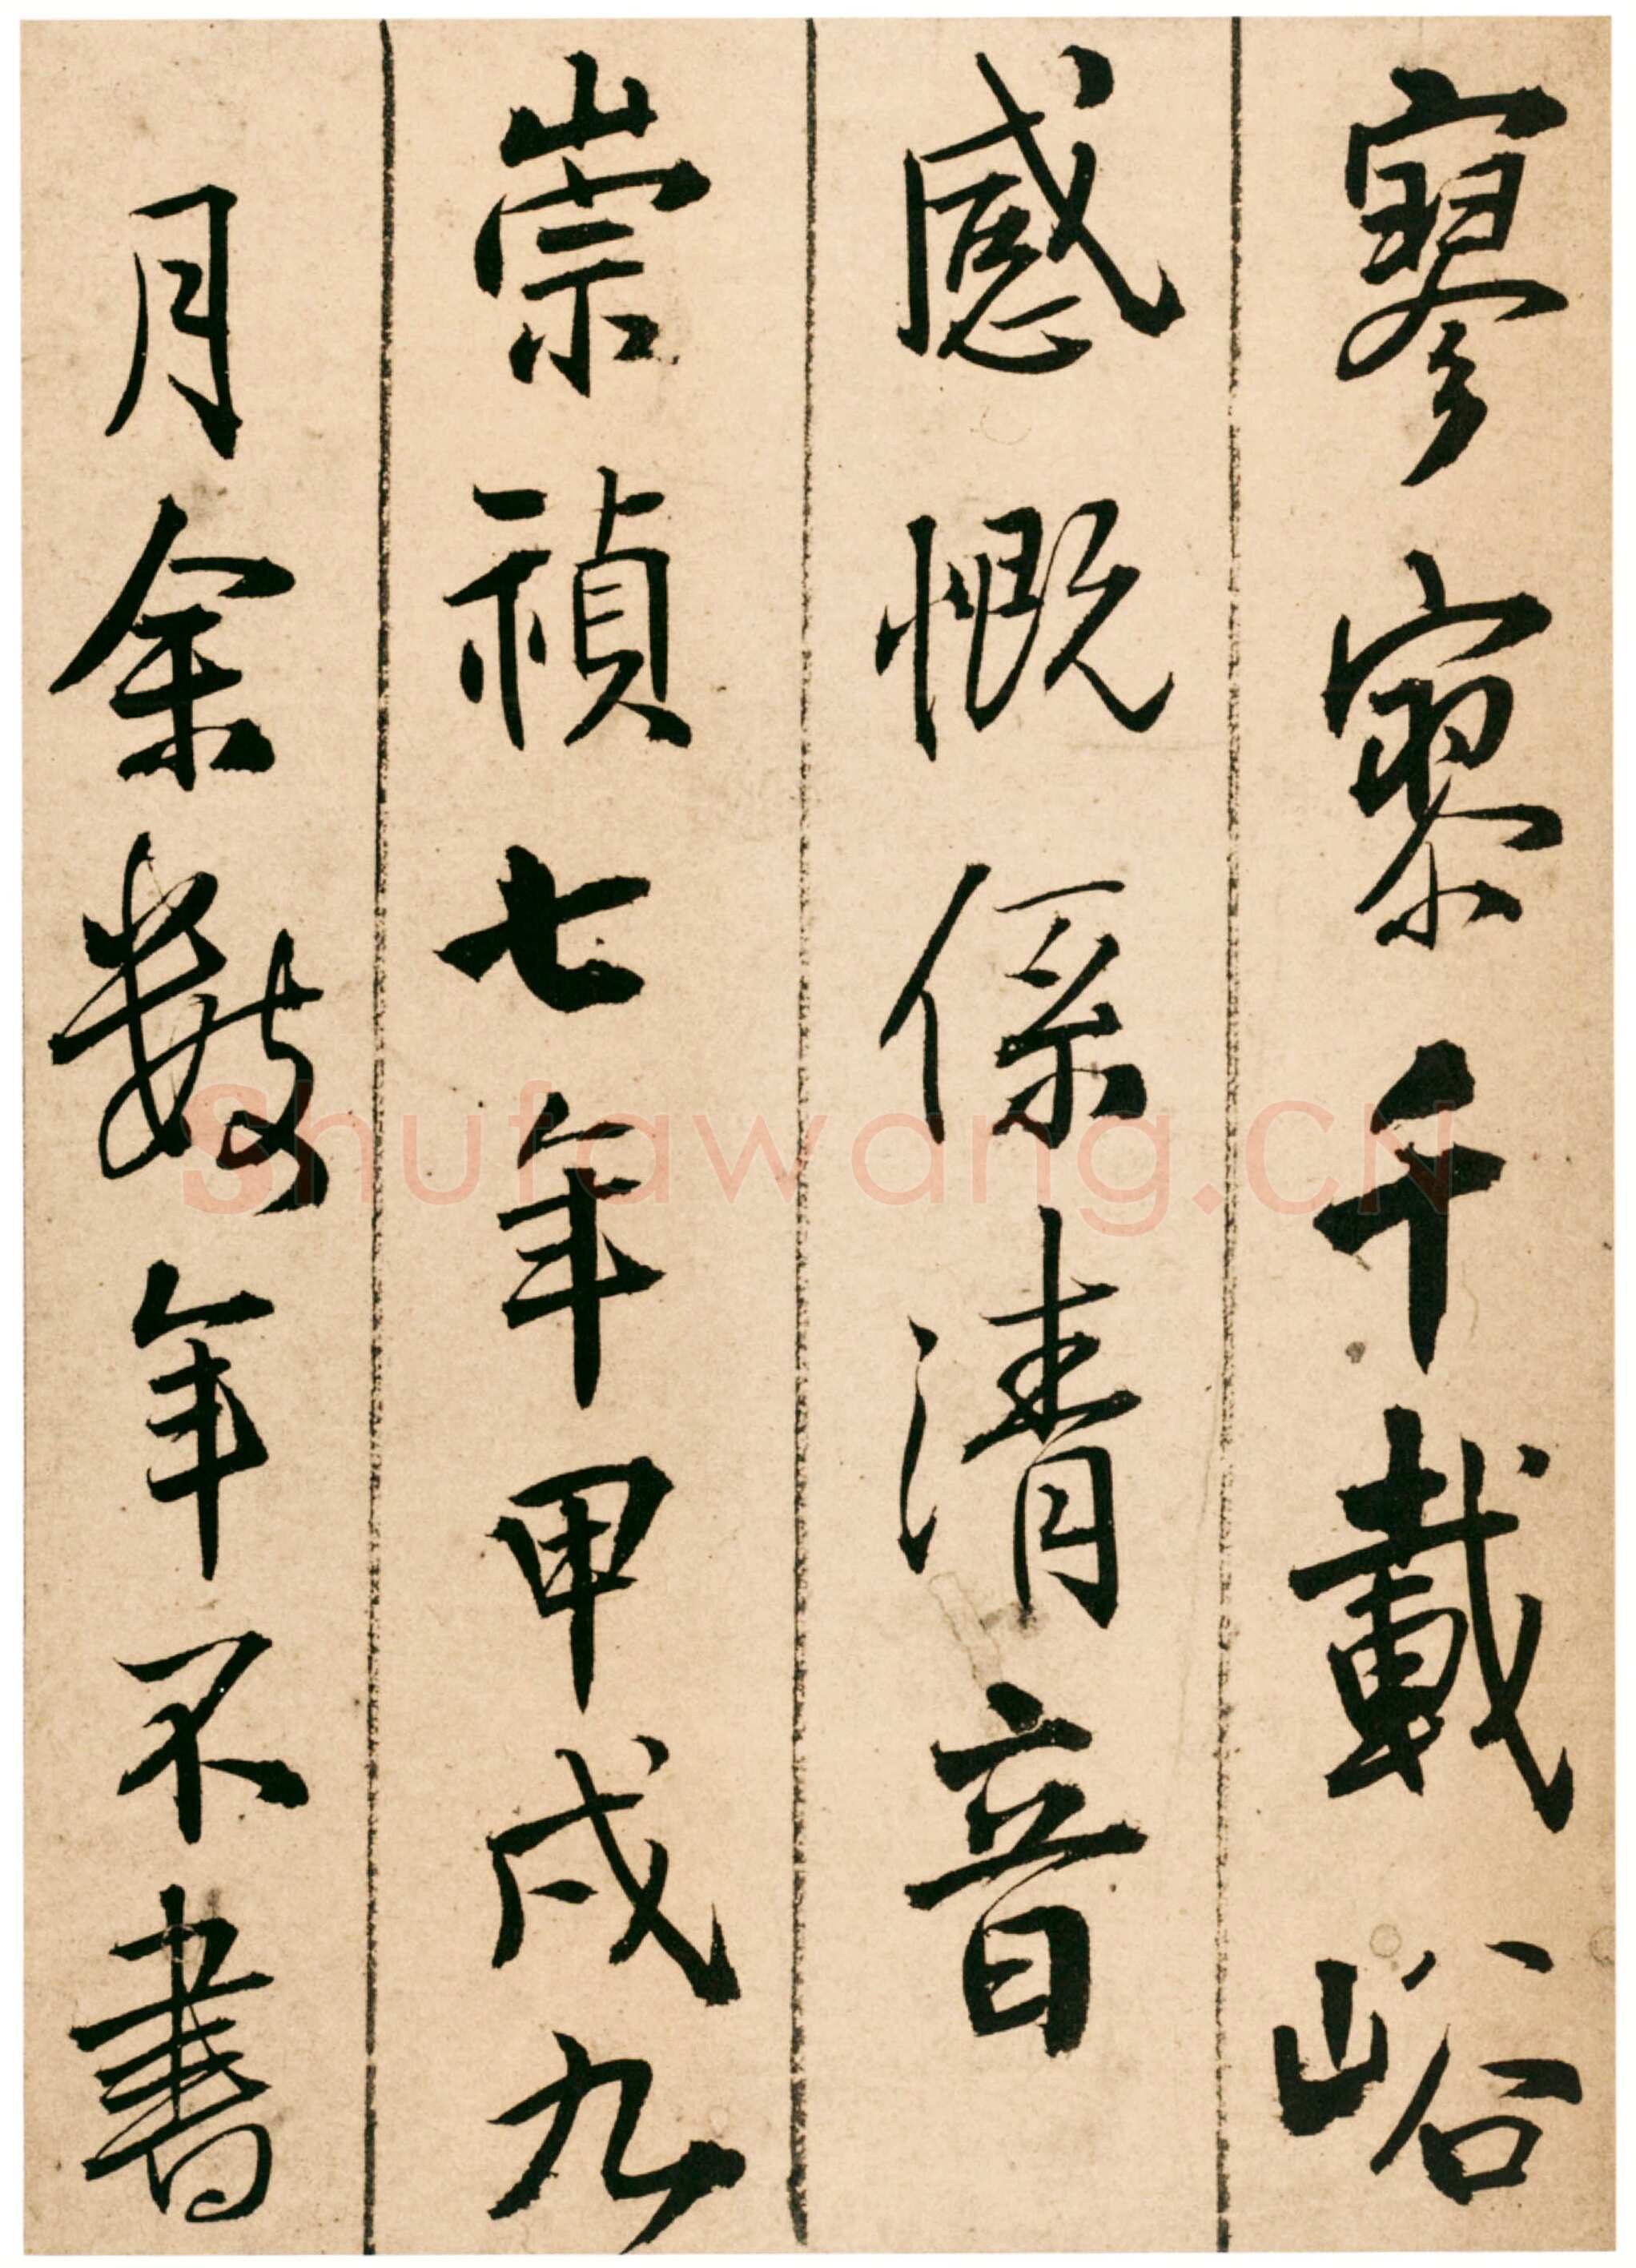 寥寥千載峪
感慨係清音
崇禎七年甲戌九
月余數年不書
Shufawang.CN